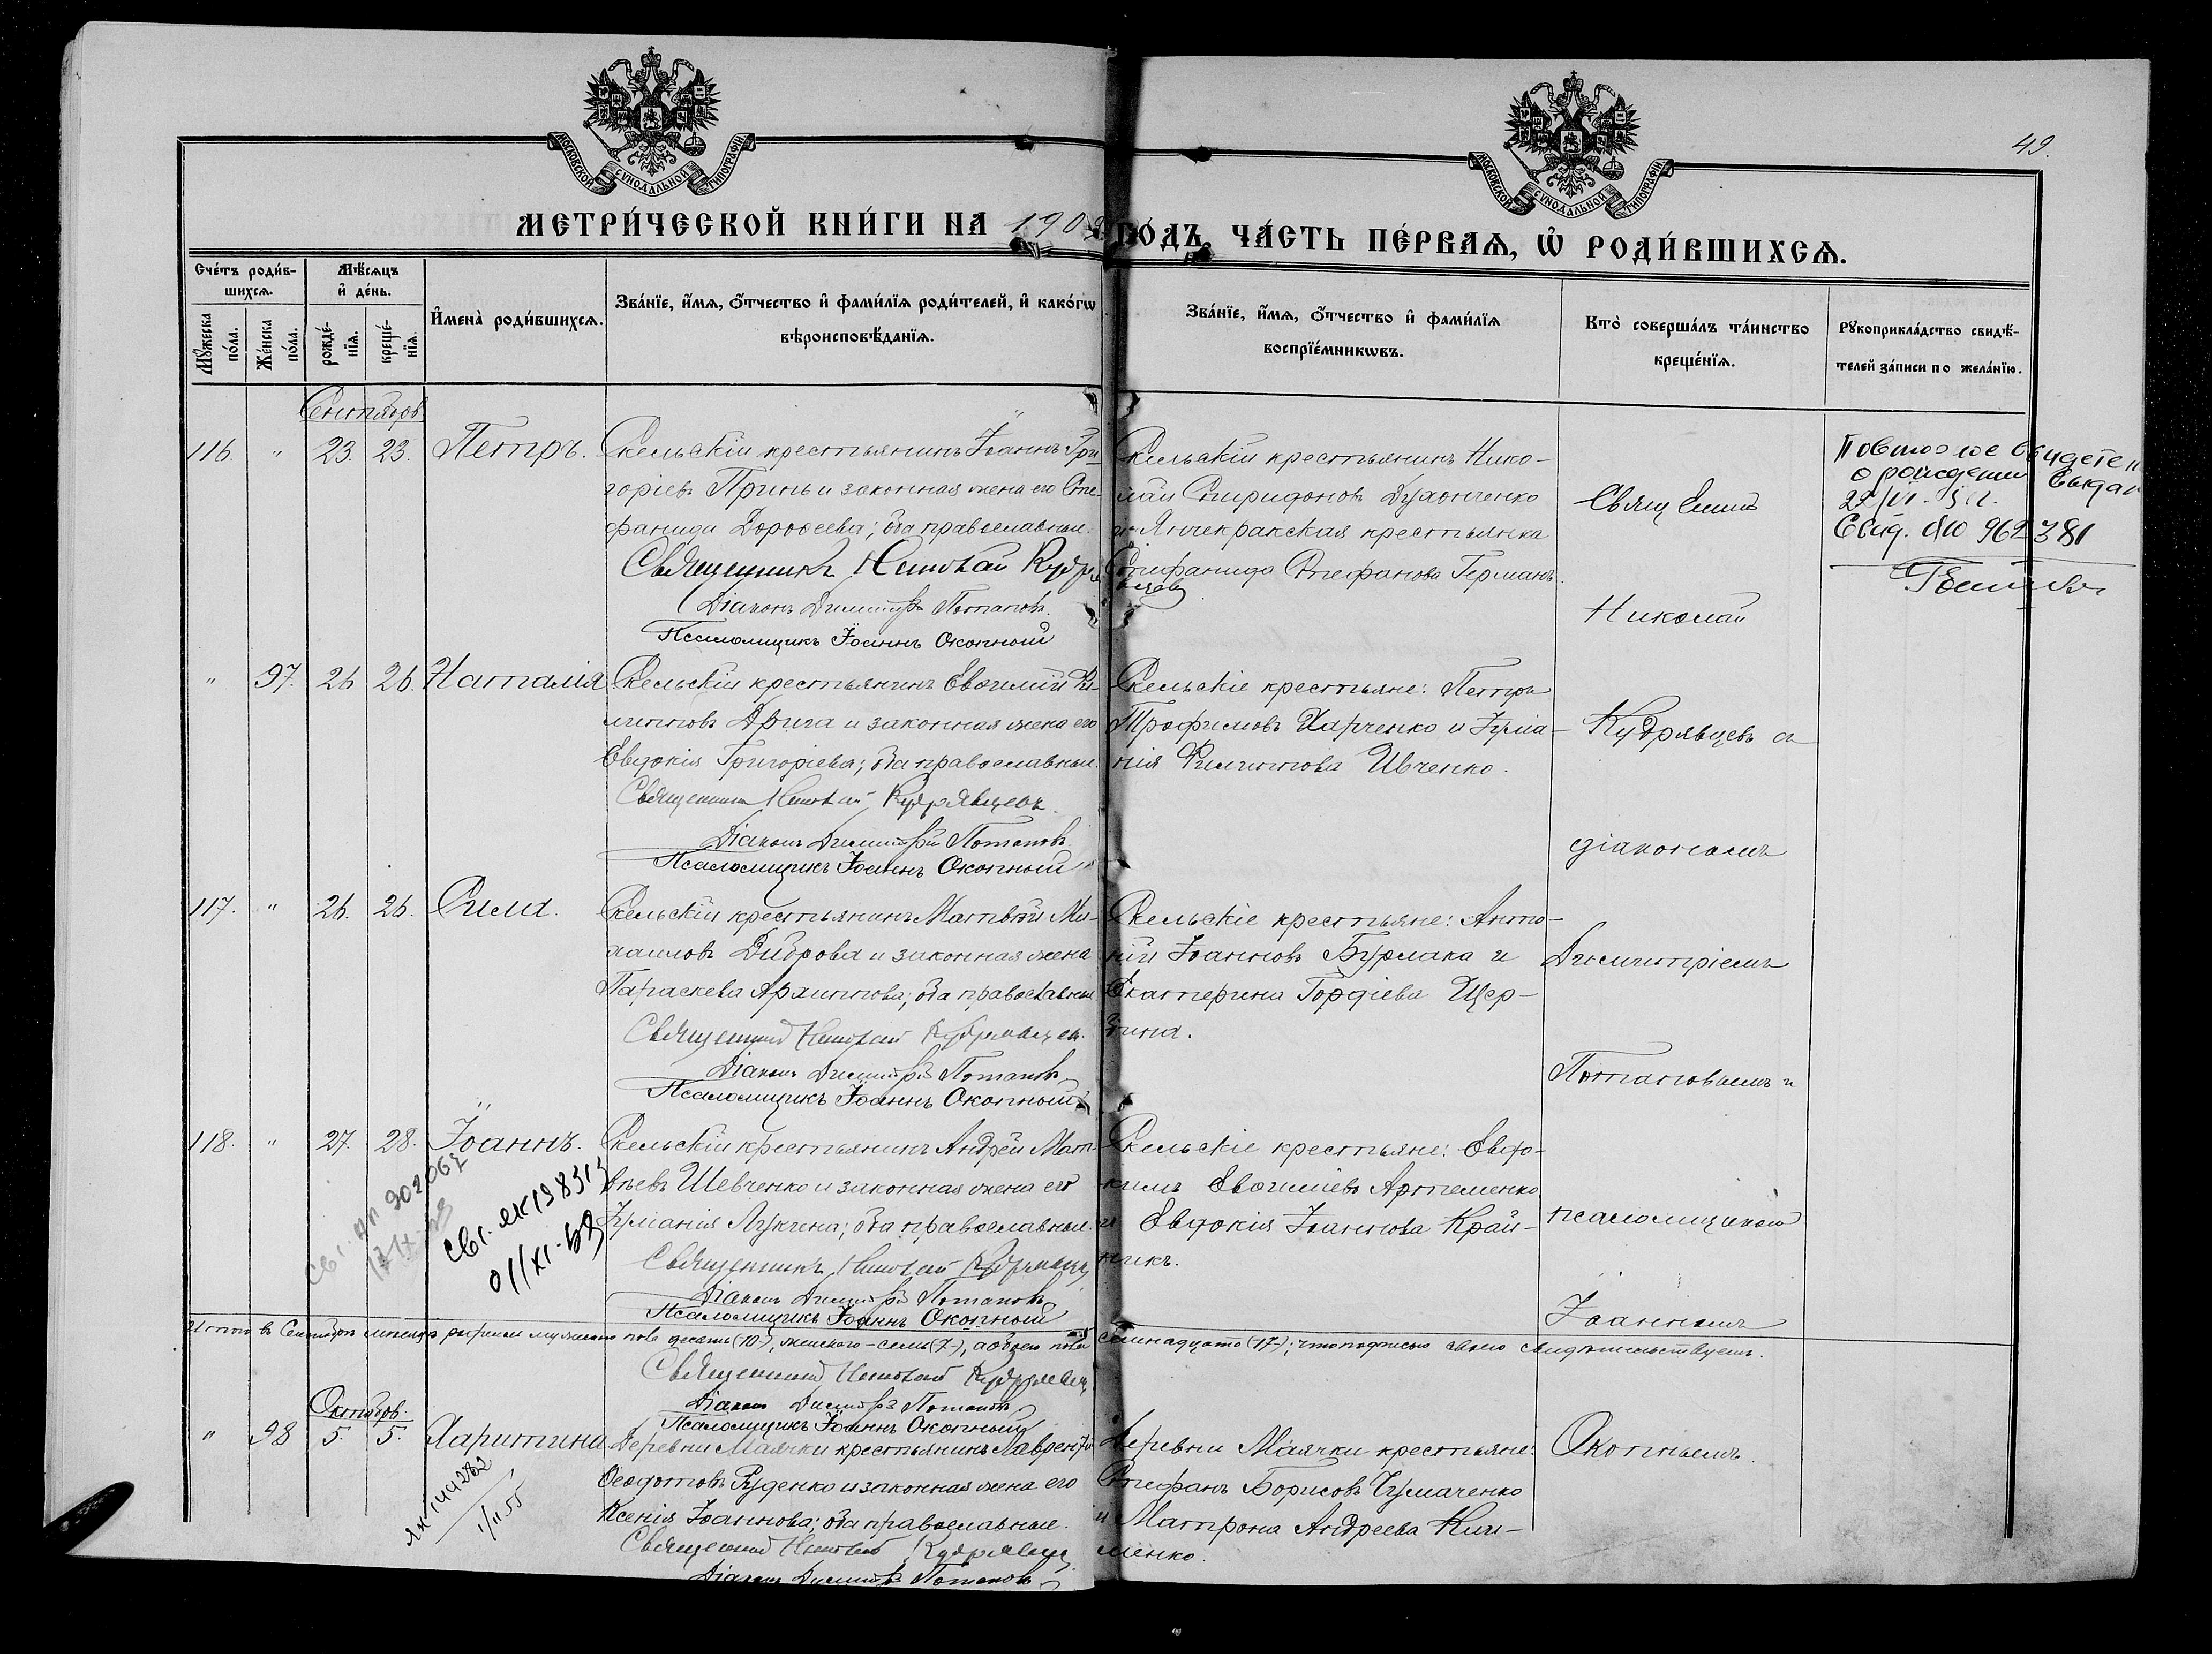 МОСКОВСКОЙ СѴНОДАЛЬНОЙ ТИПОГРАФІИ
МОСКОВСКОЙ СѴНОДАЛЬНОЙ ТИПОГРАФІИ
49.
МЕТРИ́ЧЕСКОЙ КНИ́ГИ НА 1902 ГОДЪ, ЧА́СТЬ ПЕ́РВАѦ, Ѡ РОДИ́ВШИХСѦ.
Сче́тъ роди́в-
шихсѧ.
Мѣ́сѧцъ
и де́нь.
Мꙋ́жеска
по́ла.
Же́нска
по́ла.
рожде́-
нїѧ.
креще́-
нїѧ.
И́мена̀ роди́вшихсѧ.
Зва́нїе, и́мѧ, о́тчество и фами́лїѧ роди́телей, и како́гѡ
вѣроисповѣ́данїѧ.
Зва́нїе, и́мѧ, о́тчество и фами́лїѧ
воспрїе́мникѡвъ.
Кто̀ соверша́лъ та́инство
креще́нїѧ.
Рꙋкоприкла́дство свидѣ́-
телей за́писи по жела́нїю.
Сентябрь
116. " 23. 23. Петръ.
Скельскій крестьянинъ Іоаннъ Гри-
горіевъ Принь и законная жена его Сте-
фанида Дороѳеева; оба православные.
Священникъ Николай Кудрявцевъ
Діаконъ Димитрій Потаповъ.
Псаломщикъ Іоаннъ Окопный
Скельскій крестьянинъ Нико-
лай Спиридоновъ Духонченко
и Янчекракская крестьянка
Стефанида Стефанова Германъ.
Повторное свидетел
о рождении выдан
22/VI
Свид. 962381
" 97. 26 26. Наталія
Скельскій крестьянинъ Евѳимій Фи-
липповъ Дрига и законная жена его
Евдокія Григоріева; оба православные.
Священникъ Николай Кудрявцевъ
Діаконъ Димитрій Потаповъ.
Псаломщикъ Іоаннъ Окопный
Скельскіе крестьяне: Петръ
Трофимовъ Харченко и Іулiа-
нія Филиппова Ивченко.
117. " 26. 26. Сила.
Скельскій крестьянинъ Матвѣй Ми-
хаиловъ Диброва и законная жена
Параскева Архиппова; оба православные
Священникъ Николай Кудрявцевъ.
Діаконъ Димитрій Потаповъ
Псаломщикъ Іоаннъ Окопный
Скельскіе крестьяне: Анто-
ній Іоанновъ Бурлака и
Екатерина Гордіева Щер-
бина.
118. " 27. 28. Іоаннъ.
Скельскій крестьянинъ Андрей Мат-
вѣевъ Шевченко и законная жена его
Іуліанія Лукина; оба православные.
Священникъ Николай Кудрявцевъ
Діаконъ Димитрій Потаповъ
Псаломщикъ Іоаннъ Окопный
Скельскіе крестьяне: Евдо-
кимъ Евѳиміевъ Артеменко
и Евдокія Іоаннова Край-
никъ.
Священникъ
Николай
Кудрявцевъ съ
діакономъ
Димитріемъ
Потаповымъ и
псаломщикомъ
Іоанномъ
Окопнымъ.
Итого въ Сентябрѣ мѣсяцѣ родилось мужеска пола десять (10), женскаго – семь (7), а обоего пола семнадцать (17); что подписью своею свидѣтельствуемъ.
Священникъ Николай Кудрявцевъ
Діаконъ Димитрій Потаповъ
Псаломщикъ Іоаннъ Окопный
Октябрь.
" 98 5. 5. Харитина
ЯК 144282
1/II 55
Деревни Маячки крестьянинъ Лаврентій
Ѳеодотовъ Руденко и законная жена его
Ксенія Іоаннова; оба православные.
Священникъ Николай Кудрявцевъ
Діаконъ Димитрій Потаповъ
Деревни Маячки крестьяне:
Стефанъ Борисовъ Чумаченко
и Матрона Андреева Кли-
менко.